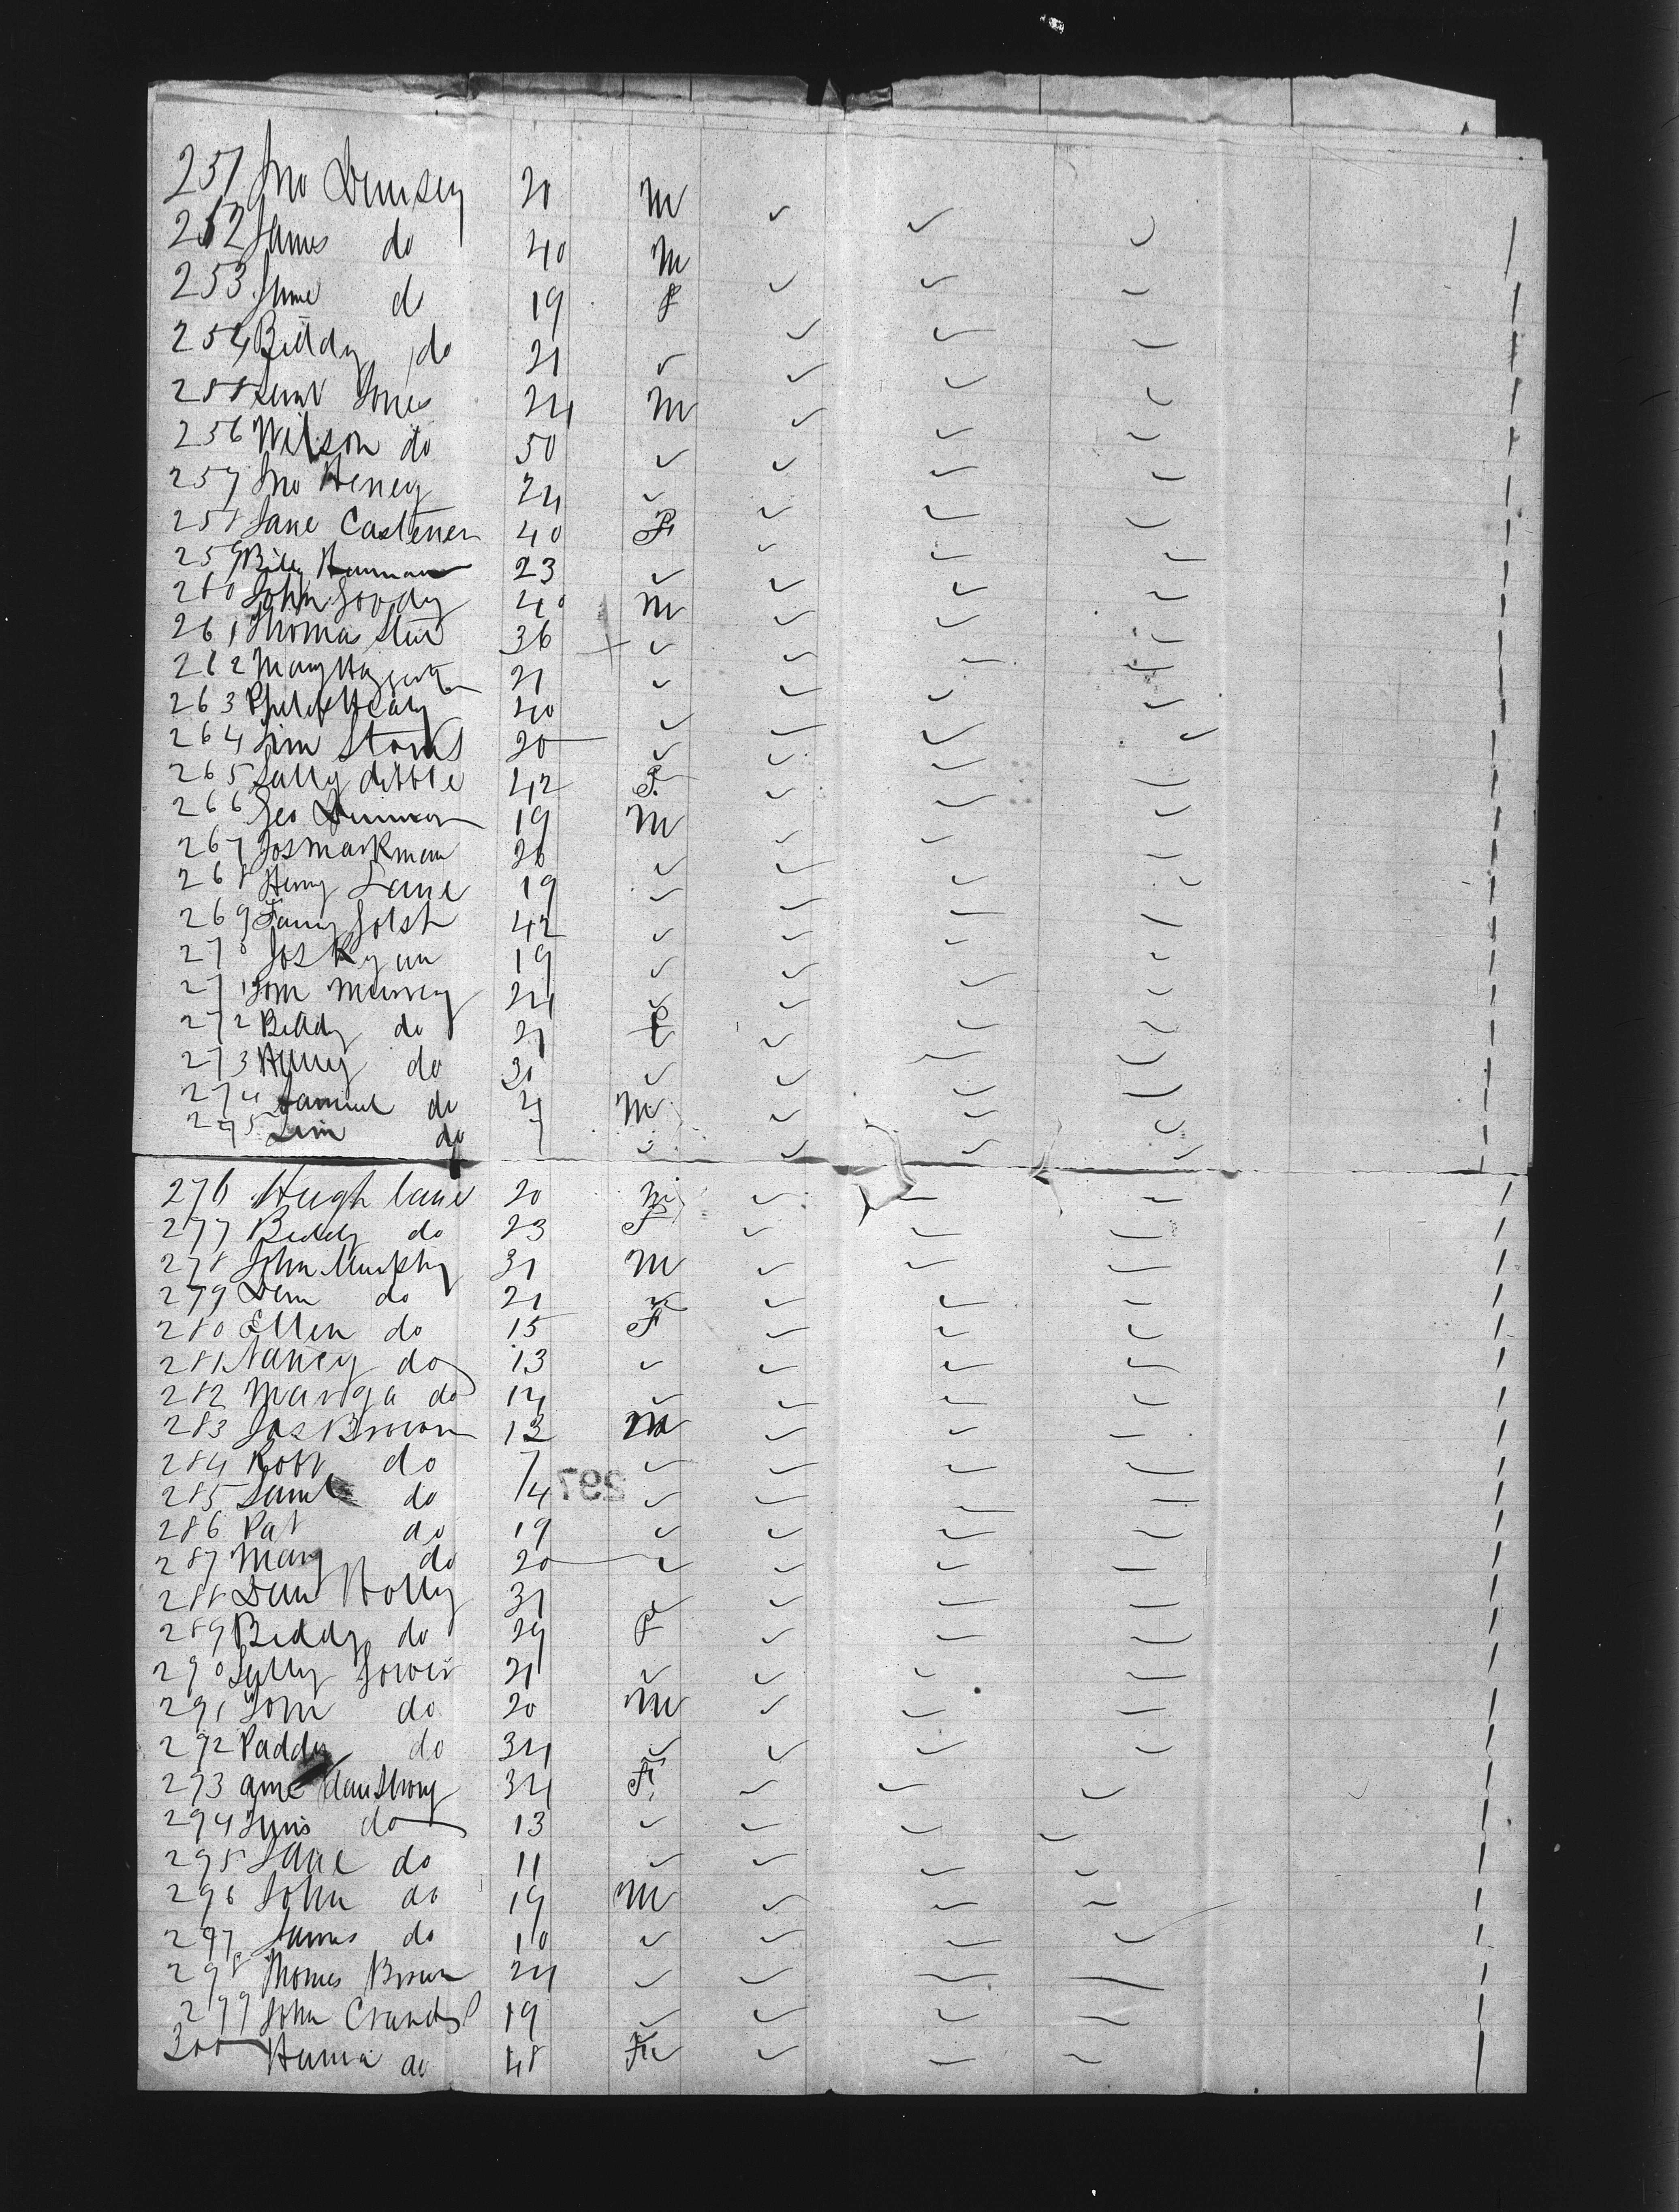 251 Jno Dempsey 21 M
252 James do 40 M
253 Jane do 19 F
254 Biddy do 21 ✓
255 Jones 24 M
256 Wilson do 50 ✓
257 Jno Henery 24 ✓
258 Jane Castener 40 F
259 23 ✓
260 John Goody 40 M
261 Thomas 36 ✓
262 Mary 21 ✓
263 Philip Healy 40 ✓
264 Jim Storms 20 ✓
265 Sally dibble 42 F
266 Geo 19 M
267 Jos Markman 26 ✓
268 Henry Lane 19 ✓
269 42 ✓
270 Jos Ryan 19 ✓
271 Tom Murrey 24 ✓
272 Biddy do 21 F
273 do 31 ✓
274 Samuel do 21 M
275 Jim do 7 ✓
276 Hugh Lane 20 M
277 Biddy do 23 F
278 John Murphy 31 M
279 do 21 ✓
280 Ellen do 15 F
281 Nancy do 13 ✓
282 do 14 ✓
283 Jas Brown 13 M
284 Robt do 7 ✓
285 Saml do 14 ✓
286 Pat do 19 ✓
287 Mary do 20 ✓
288 Holly 31 ✓
289 Biddy do 29 F
290 21 ✓
291 Tom do 20 M
292 Paddy do 34 ✓
293 34 F
294 do 13 ✓
295 Jane do 11 ✓
296 John do 19 M
297 James do 10 ✓
298 Thomas Brown 24 ✓
299 John 19 ✓
300 do 48 F